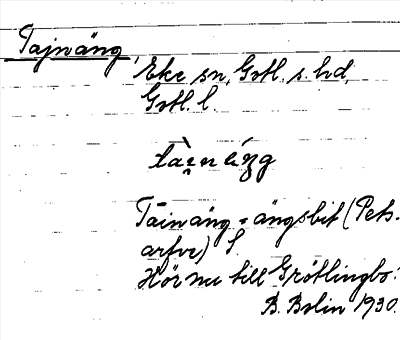 Tajnäng,
Eke sn, Gotl. s. hd,
Gotl. l.
Täinäng = ängsbit (Pets-
arfve) S.
Hör nu till Grötlingbo.
B. Bolin 1930.